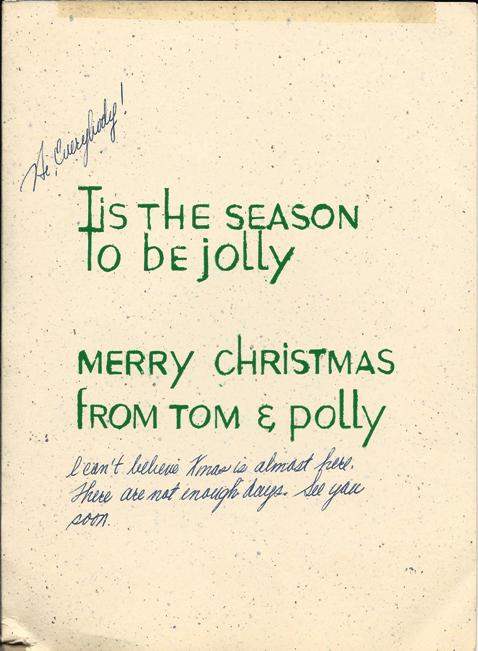 Hi Everybody!
Tis THE SEASON
To bE jolly
MERRY ChRiSTMAS
fROM TOM & polly
I can't believe Xmas is almost here.
There are not enough days. See you
soon.